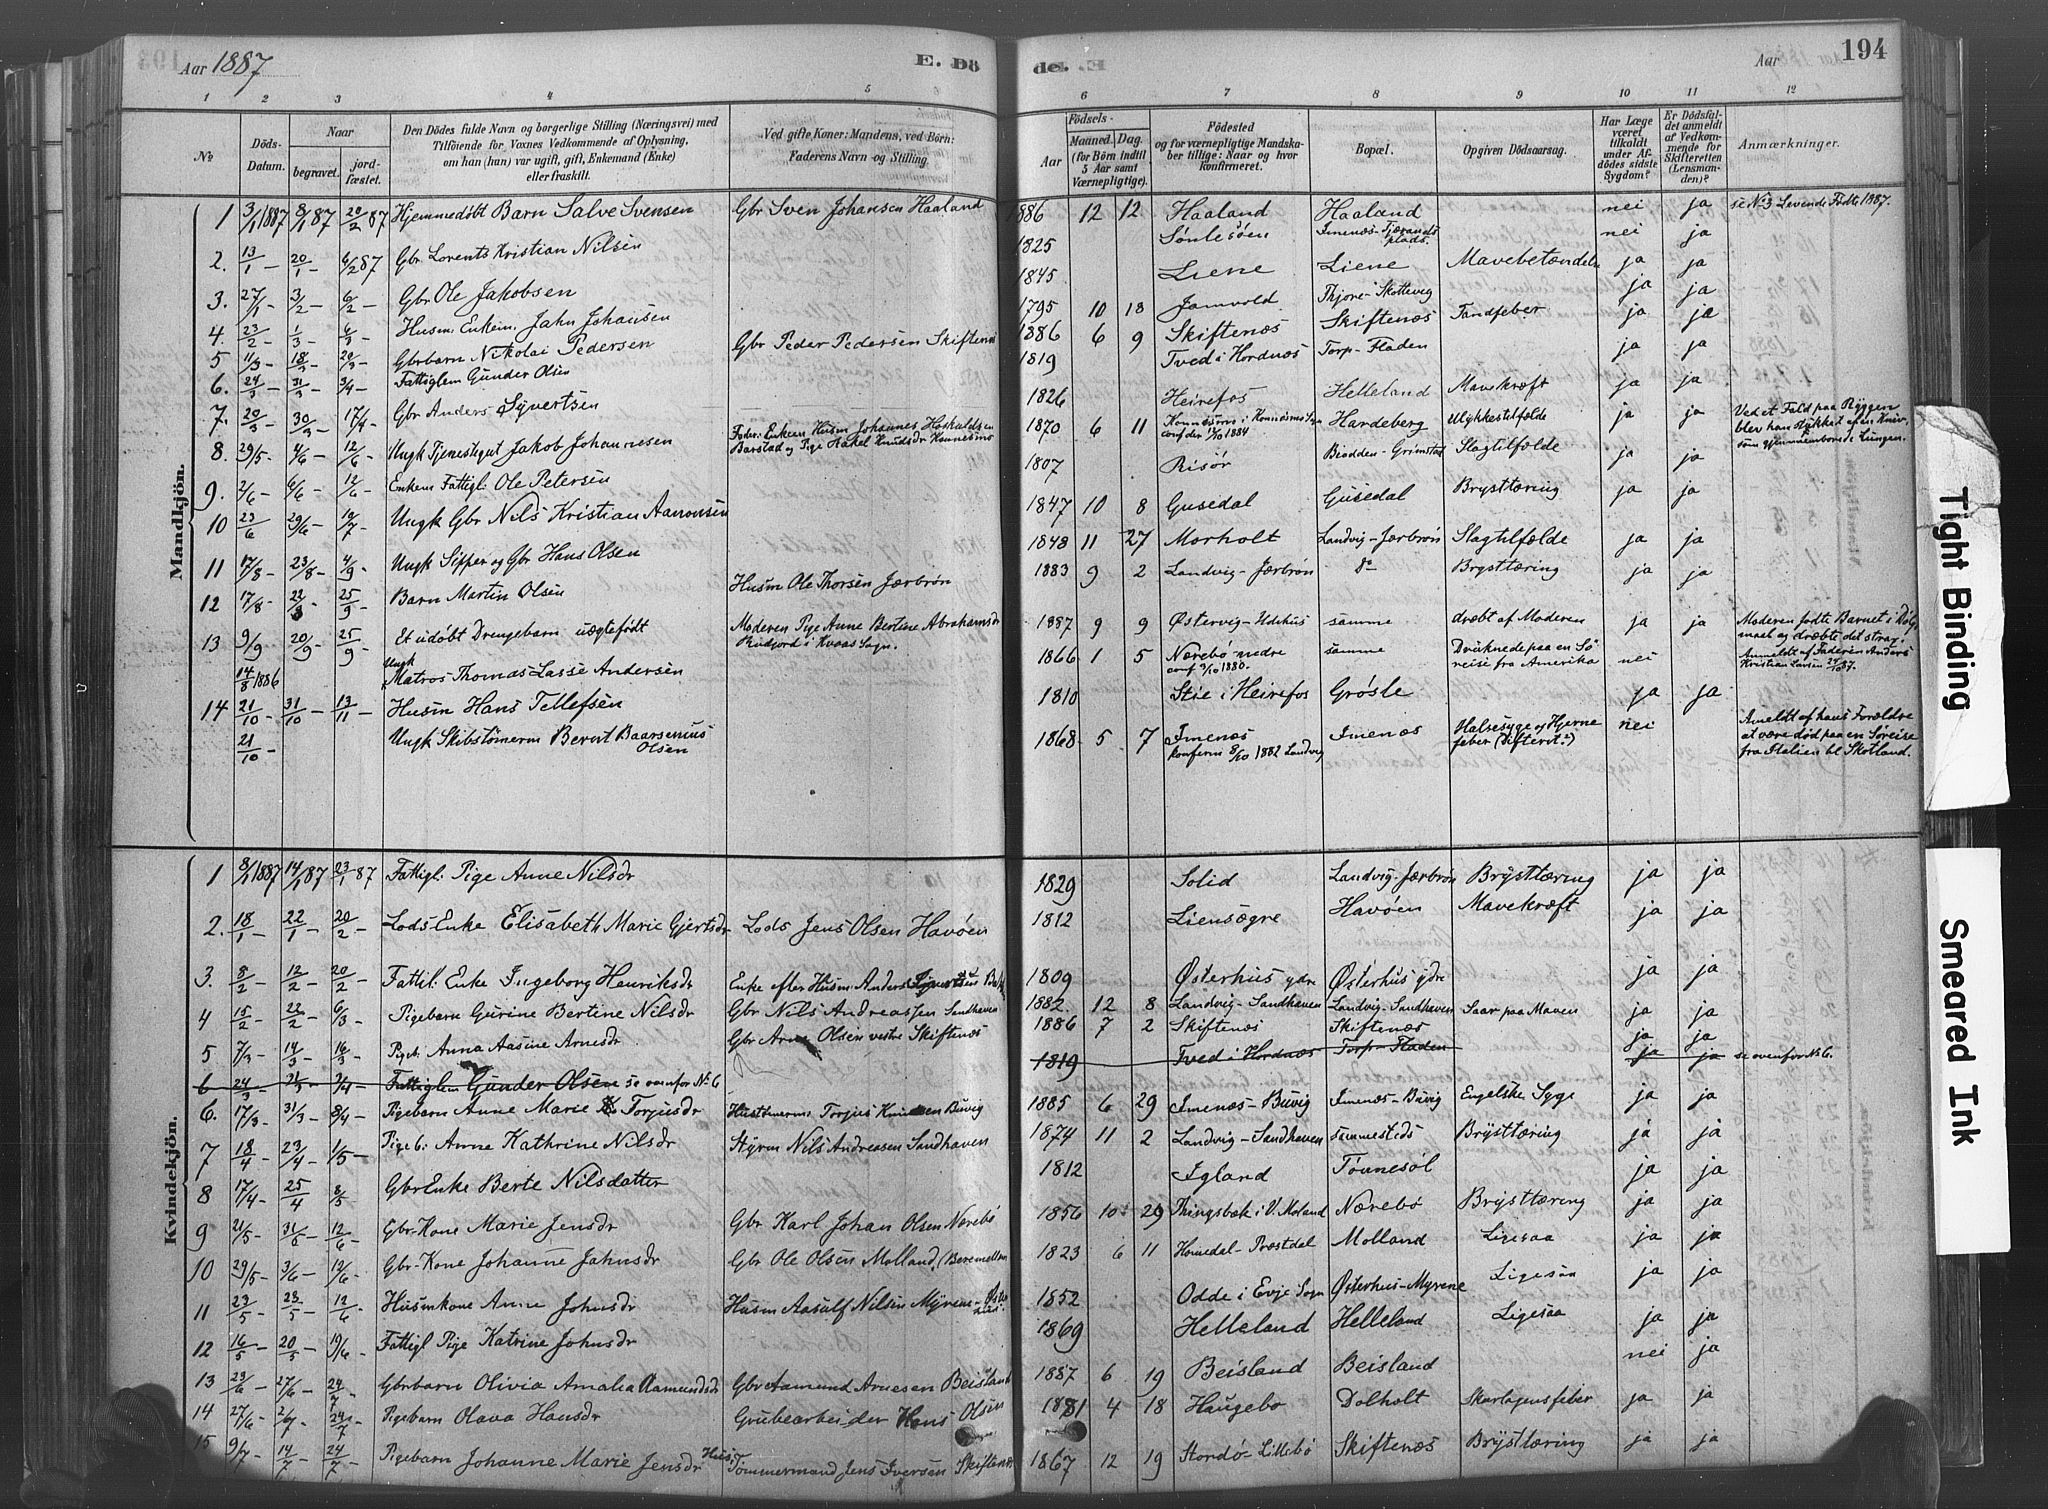 Aar 1887 E. Dö de. E Aar 194
1 2 3 4 5 6 7 8 9 10 11 12
№ Döds-Datum. Naar begravet. jordfæstet. Den Dödes fulde Navn og borgerlige Stilling (Næringsvei) med Tilföiende for Voxnes Vedkommende af Oplysning, om han (hun) var ugift, gift, Enkemand (Enke) eller fraskilt. Ved gifte Koner: Mandens, ved Börn: Faderens Navn og Stilling. Födsels- Aar Maaned. Dag. (for Börn indtil 5 Aar samt Værnepligtige). Födested og for værnepligtige Mandskaber tillige: Naar og hvor konfirmeret. Bopæl. Opgiven Dödsaarsag. Har Læge været tilkaldt under Afdödes sidste Sygdom? Er Dödsfaldet anmeldt af Vedkommende for Skifteretten (Lensmanden)? Anmærkninger.
Mandkjön.
1 3/1 1887 8/1 87 20/2 87 Hjemmedöbt Barn Salve Svensen Gbr Sven Johansen Haaland 1886 12 12 Haaland Haaland nei ja se No 3 Levende Fødte 1887.
2. 13/1 – 20/1 – 6/2 87 Gbr. Lorents Kristian Nilsen 1825 Imenæs- plads. nei ja
3. 27/1 – 3/2 – 6/2 – Gbr Ole Jakobsen 1845 Liene Liene Mavebetændelse ja ja
4. 23/2 – 1/3 – 6/3 – Husm. Enkem. Jahn Johansen 1795 10 18 Jomvold Thjore-Skottevig ja ja
5 11/3 – 18/3 – 20/3 – Gbrbarn Nikolai Pedersen Gbr Peder Pedersen Skiftenæs 1886 6 9 Skiftenæs Skiftenæs Tandfeber ja ja
6. 24/3 – 31/3 – 3/4 – Fattiglem Gunder Olsen 1819 Tved i Hordnæs Torp-Fladen ja ja
7. 20/3 – 30/3 – 17/4 – Gbr Anders Syvertsen 1826 Heirefos Helleland Mavekræft ja ja
8. 29/5 – 4/6 – 12/6 – Ungk Tjenestgut Jakob Johannesen Fader: Enkem Husm Johannes Hoskuldsen Barstad og Pige Rakel Knudsdr Konnesmo 1870 6 11 Konnesmo i Konnesmo Sogn conf der 12/10 1884 Hardeberg Ulykkestilfælde ja ja Ved et Fald paa Ryggen blev han stukket af en Kniv, som gjennemborede Lungen.
9. 2/6 – 6/6 – 12/6 – Enkem Fattigl: Ole Petersen 1807 Risör Brodden-Grimstad Slagtilfælde ja ja
10 23/6 – 29/6 – 10/7 – Ungk Gbr Nils Kristian Aanonsen 1847 10 8 Gusedal Gusedal Brysttæring ja ja
11 17/8 – 23/8 – 4/9 – Ungk Sipper og Gbr Hans Olsen 1848 11 27 Morholt Landvig-Jærbrön Slagtilfælde ja ja
12 17/8 – 22/8 – 25/9 – Barn Martin Olsen Husm Ole Thorsen Jærbrön 1883 9 2 Landvig-Jærbrön do Brysttæring ja ja
13 9/9 – 20/9 – 25/9 – Et udöbt Drengebarn uægtefödt Moderen Pige Anne Bertine Abrahamsdr i Kvaas Sogn. 1887 9 9 Østervig-Udhus samme dræbt af Moderen ja ja Moderen födte Barnet i Dölgsmaal og dræbte det strax.
14/8 1886 Ungk Matros Thomas Lasse Andersen 1866 1 5 Nærebö nedre conf 3/10 1880. samme Druknede paa en Söreise fra Amerika nei Anmeldt af Faderen Anders Kristian Larsen 24/10 87.
14 21/10 – 31/10 – 13/11 – Husm Hans Tellefsen 1810 Stie i Heirefos Grösle ja ja
21/10 – Ungk Skibstömerm Bernt Baarsenius Olsen 1868 5 7 Imenæs konferm 8/10 1882 Landvig Imenæs Halsesyge og Hjernefeber (Difterit?) nei Anmeldt af hans Forældre at være död paa en Söreise fra Italien til Skotland.
Kvindekjön.
1 8/1 1887 14/1 87 23/1 87 Fattigl. Pige Anne Nilsdr 1829 Solid Landvig-Jærbrön Brysttæring ja ja
2. 18/1 – 22/1 – 20/2 – Lods Enke Elisabeth Marie Gjertsdr Lods Jens Olsen Havöen 1812 Liensøgre Havöen Mavekræft ja ja
3. 8/2 – 12/2 – 20/2 – Fattil: Enke Ingeborg Henriksdr Enke efter Husm Anders Syvertsen 1809 Østerhus ydre Østerhus ydre ja ja
4 15/2 – 22/2 – 6/3 – Pigebarn Gurine Bertine Nilsdr Gbr Nils Andreassen Sandhaven 1882 12 8 Landvig-Sandhaven Landvig-Sandhaven Saar paa Maven ja ja
5 7/3 – 14/3 – 16/3 – Pigeb: Anna Aasine Arnesdr Gbr Arne Olsen vestre Skiftenæs 1886 7 2 Skiftenæs Skiftenæs ja ja
6 24/3 – 31/3 – 3/4 – Fattiglem Gunder Olsen se ovenfor No 6 1819 Tved i Hordnæs Torp-Fladen ja ja se ovenfor No 6.
6. 17/3 – 31/3 – 8/4 – Pigebarn Anne Marie Torjusdr Torjus Knudsen Buvig 1885 6 29 Imenæs-Buvig Imenæs-Buvig Engelske Syge ja ja
7 18/4 – 23/4 – 1/5 – Pigeb: Anne Kathrine Nilsdr Styrm Nils Andreasen Sandhaven 1874 11 2 Landvig-Sandhaven sammesteds Brysttæring ja ja
8 17/4 – 25/4 8/5 Gbr Enke Berte Nilsdatter 1812 Igland Tönnesöl ja ja
9 21/5 – 31/5 – 12/6 – Gbr-Kone Marie Jensdr Gbr Karl Johan Olsen Nærebö 1856 10 29 Thingsbæk i V. Moland Nærebö Brysttæring ja ja
10 29/5 – 3/6 – 12/6 – Gbr-Kone Johanne Jahnsdr Gbr Ole Olsen Molland 1823 6 11 Homedal-Præstdal Molland Ligesaa ja ja
11 23/5 – 23/5 – 12/6 – Husmkone Anne Johnsdr Husm Aasulf Nilsen Myrene-Østerhus. 1852 Odde i Evje Sogn Østerhus-Myrene Ligesaa ja ja
12 16/5 – 20/5 – 19/6 – Fattigl Pige Katrine Johnsdr 1869 Helleland Helleland Ligesaa ja ja
13 23/6 – 27/6 – 24/7 – Gbrbarn Olivia Amalia Aamundsdr Gbr Aamund Arnesen Beisland 1887 6 19 Beisland Beisland nei ja
14 27/6 – 2/7 – 24/7 – Pigebarn Olava Hansdr Grubearbeider Hans Olsen 1881 4 18 Haugebo Dolholt Skarlagensfeber ja ja
15 9/7 – 14/7 – 24/7 – Pigebarn Johanne Marie Jensdr Tömmermand Jens Iversen Skiftenæs 1867 12 19 Stordö-Lillebö Skiftenæs Brysttæring ja ja
Tight Binding
Smeared Ink